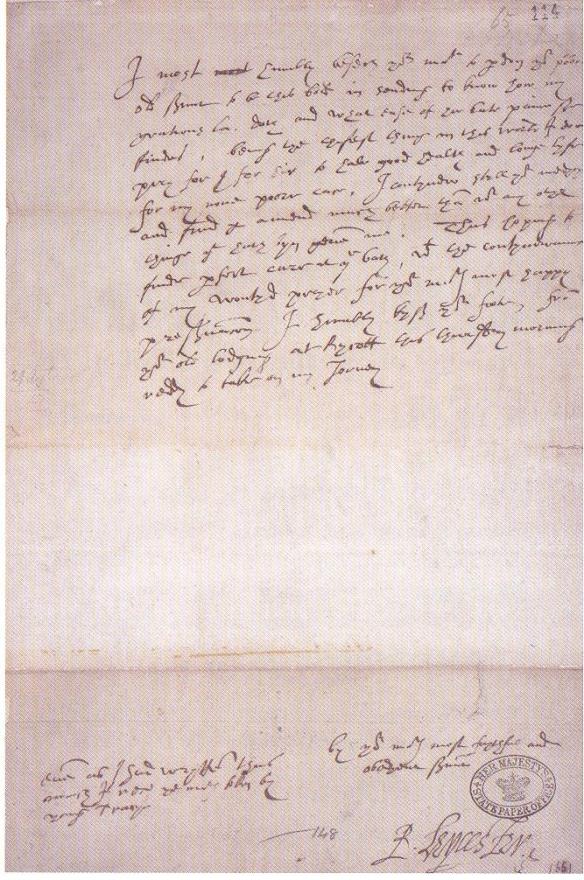 65 114
I most humbly besech yor matie to pdon yor poore
old sarvnt to be thus bold in sending to know how my
gratious la. doth and what ease of her late paine she
findes, being the chefest thing in this world I doe
pray for & for hir to have good health and long lyfe
for my none poore case, I contynew still yor medycyn
and find it amend much better than wt any other
thing yt hath byn given me. Thus hoping to
finde pfect cure at ye bath, wt the contynuance
of my wontyd prayer for yor maties most happy
preservacion I humbly kyss yor foote, from
yor old lodging at Rycott this thursday morning
reddy to take on my Jorney
by yor maties most faythfull and
obedyent sarvant
R. Leycester
even as I had wrytten thus
much I rec yor maties token by
yonge Tracy
148
HER MAJESTY'S STATE PAPER OFFICE